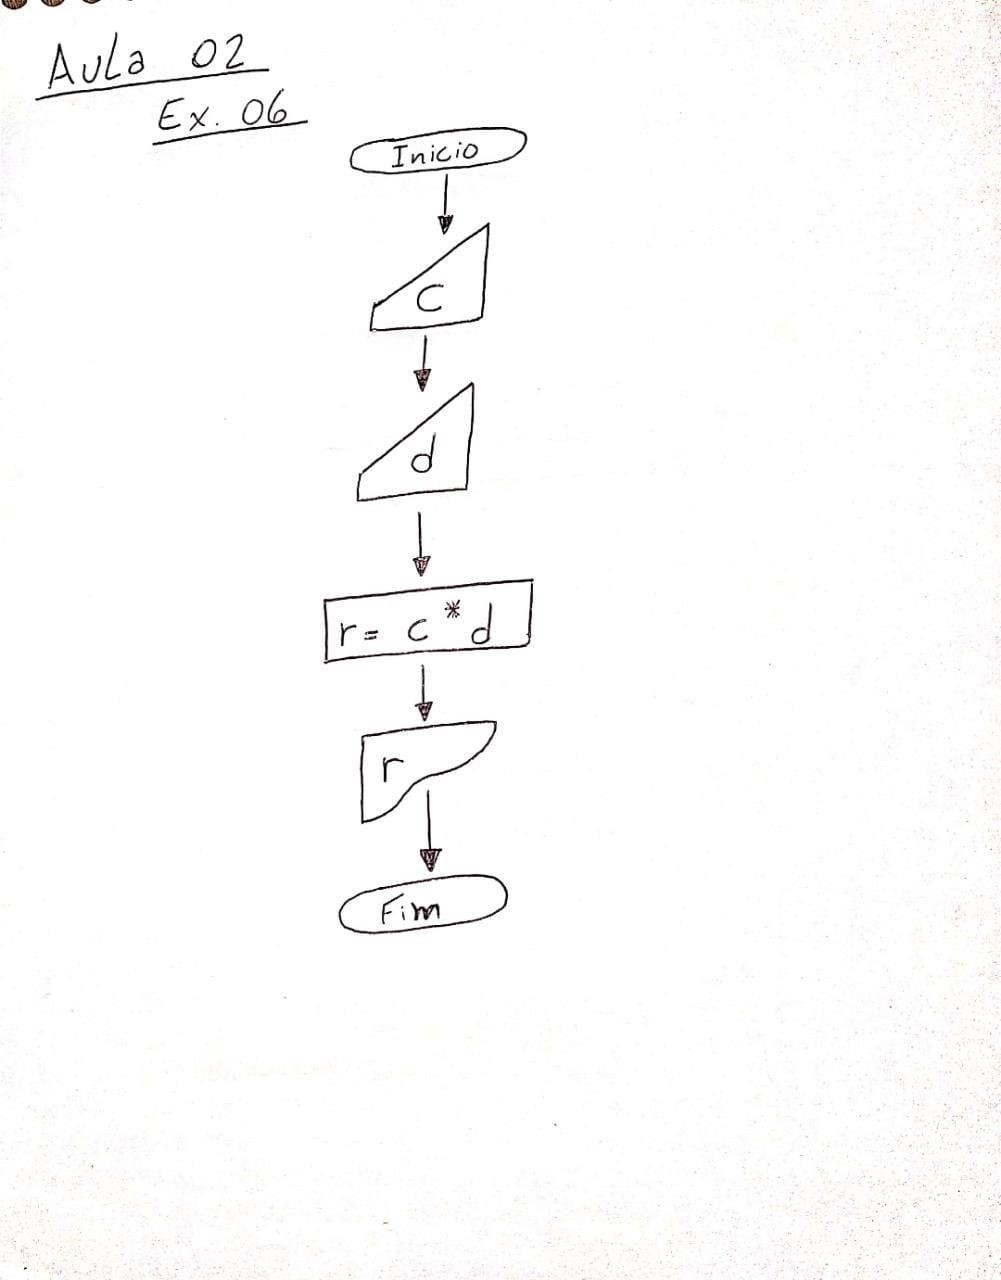 Aula 02
Ex. 06
Inicio
c
d
r = c * d
r
Fim